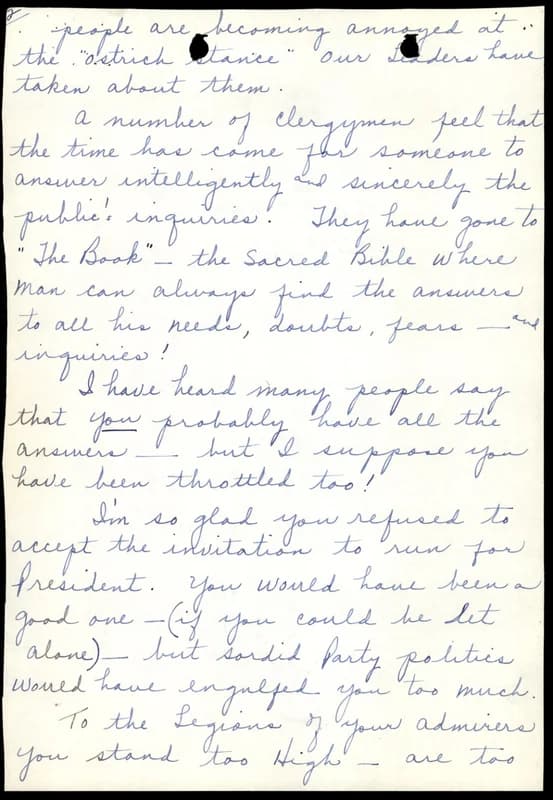 2.
people are becoming annoyed at
the "ostrich stance" our Leaders have
taken about them.
A number of Clergymen feel that
the time has come for someone to
answer intelligently and sincerely the
public's inquiries. They have gone to
"The Book" — the Sacred Bible where
man can always find the answers
to all his needs, doubts, fears — and
inquiries!
I have heard many people say
that you probably have all the
answers — but I suppose you
have been throttled too!
I'm so glad you refused to
accept the invitation to run for
President. You would have been a
good one — (if you could be let
alone) — but sordid Party politics
would have engulfed you too much.
To the Legions of your admirers
you stand too High — are too